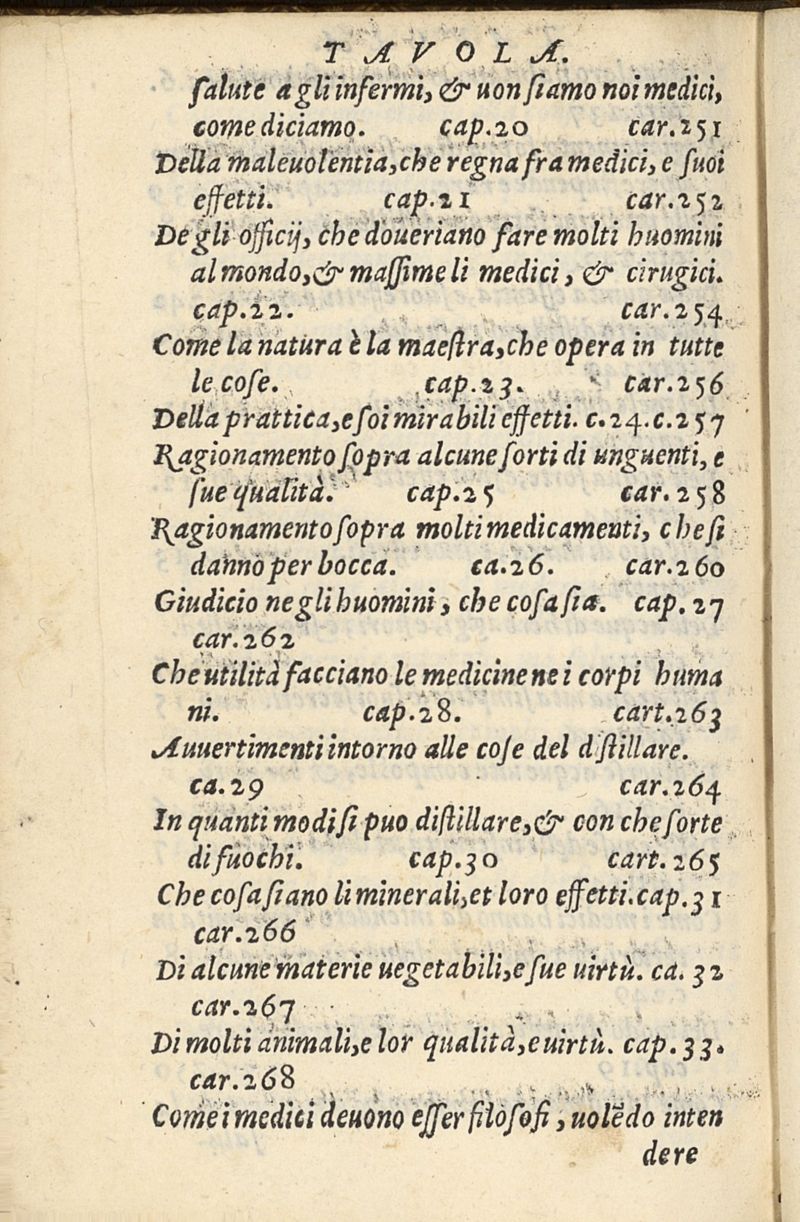 TAVOLA.
ſalute a gli infermi, & uon ſiamo noi medici,
come diciamo. cap.20 car.251
Della maleuolentia, che regna fra medici, e ſuoi
effetti. cap.21 car.252
De gli officij, che doueriano fare molti huomini
al mondo, & maſſime li medici, & cirugici.
cap.22. car.254
Come la natura è la maeſtra, che opera in tutte
le coſe. cap.23. car.256
Della prattica, e ſoi mirabili effetti. c.24.c.257
Ragionamento ſopra alcune ſorti di unguenti, e
ſue qualità. cap.25 car.258
Ragionamento ſopra molti medicamenti, che ſi
danno per bocca. ca.26. car.260
Giudicio ne gli huomini, che coſa ſia. cap.27
car.262
Che utilità facciano le medicine ne i corpi huma
ni. cap.28. cart.263
Auuertimenti intorno alle coſe del dſtillare.
ca.29 car.264
In quanti modi ſi puo diſtillare, & con che ſorte
di fuochi. cap.30 cart.265
Che coſa ſiano li minerali, et loro effetti. cap.31
car.266
Di alcune materie uegetabili, e ſue uirtù. ca. 32
car.267
Di molti animali, e lor qualità, e uirtù. cap.33.
car.268
Come i medici deuono eſſer filoſofi, uolēdo inten
dere